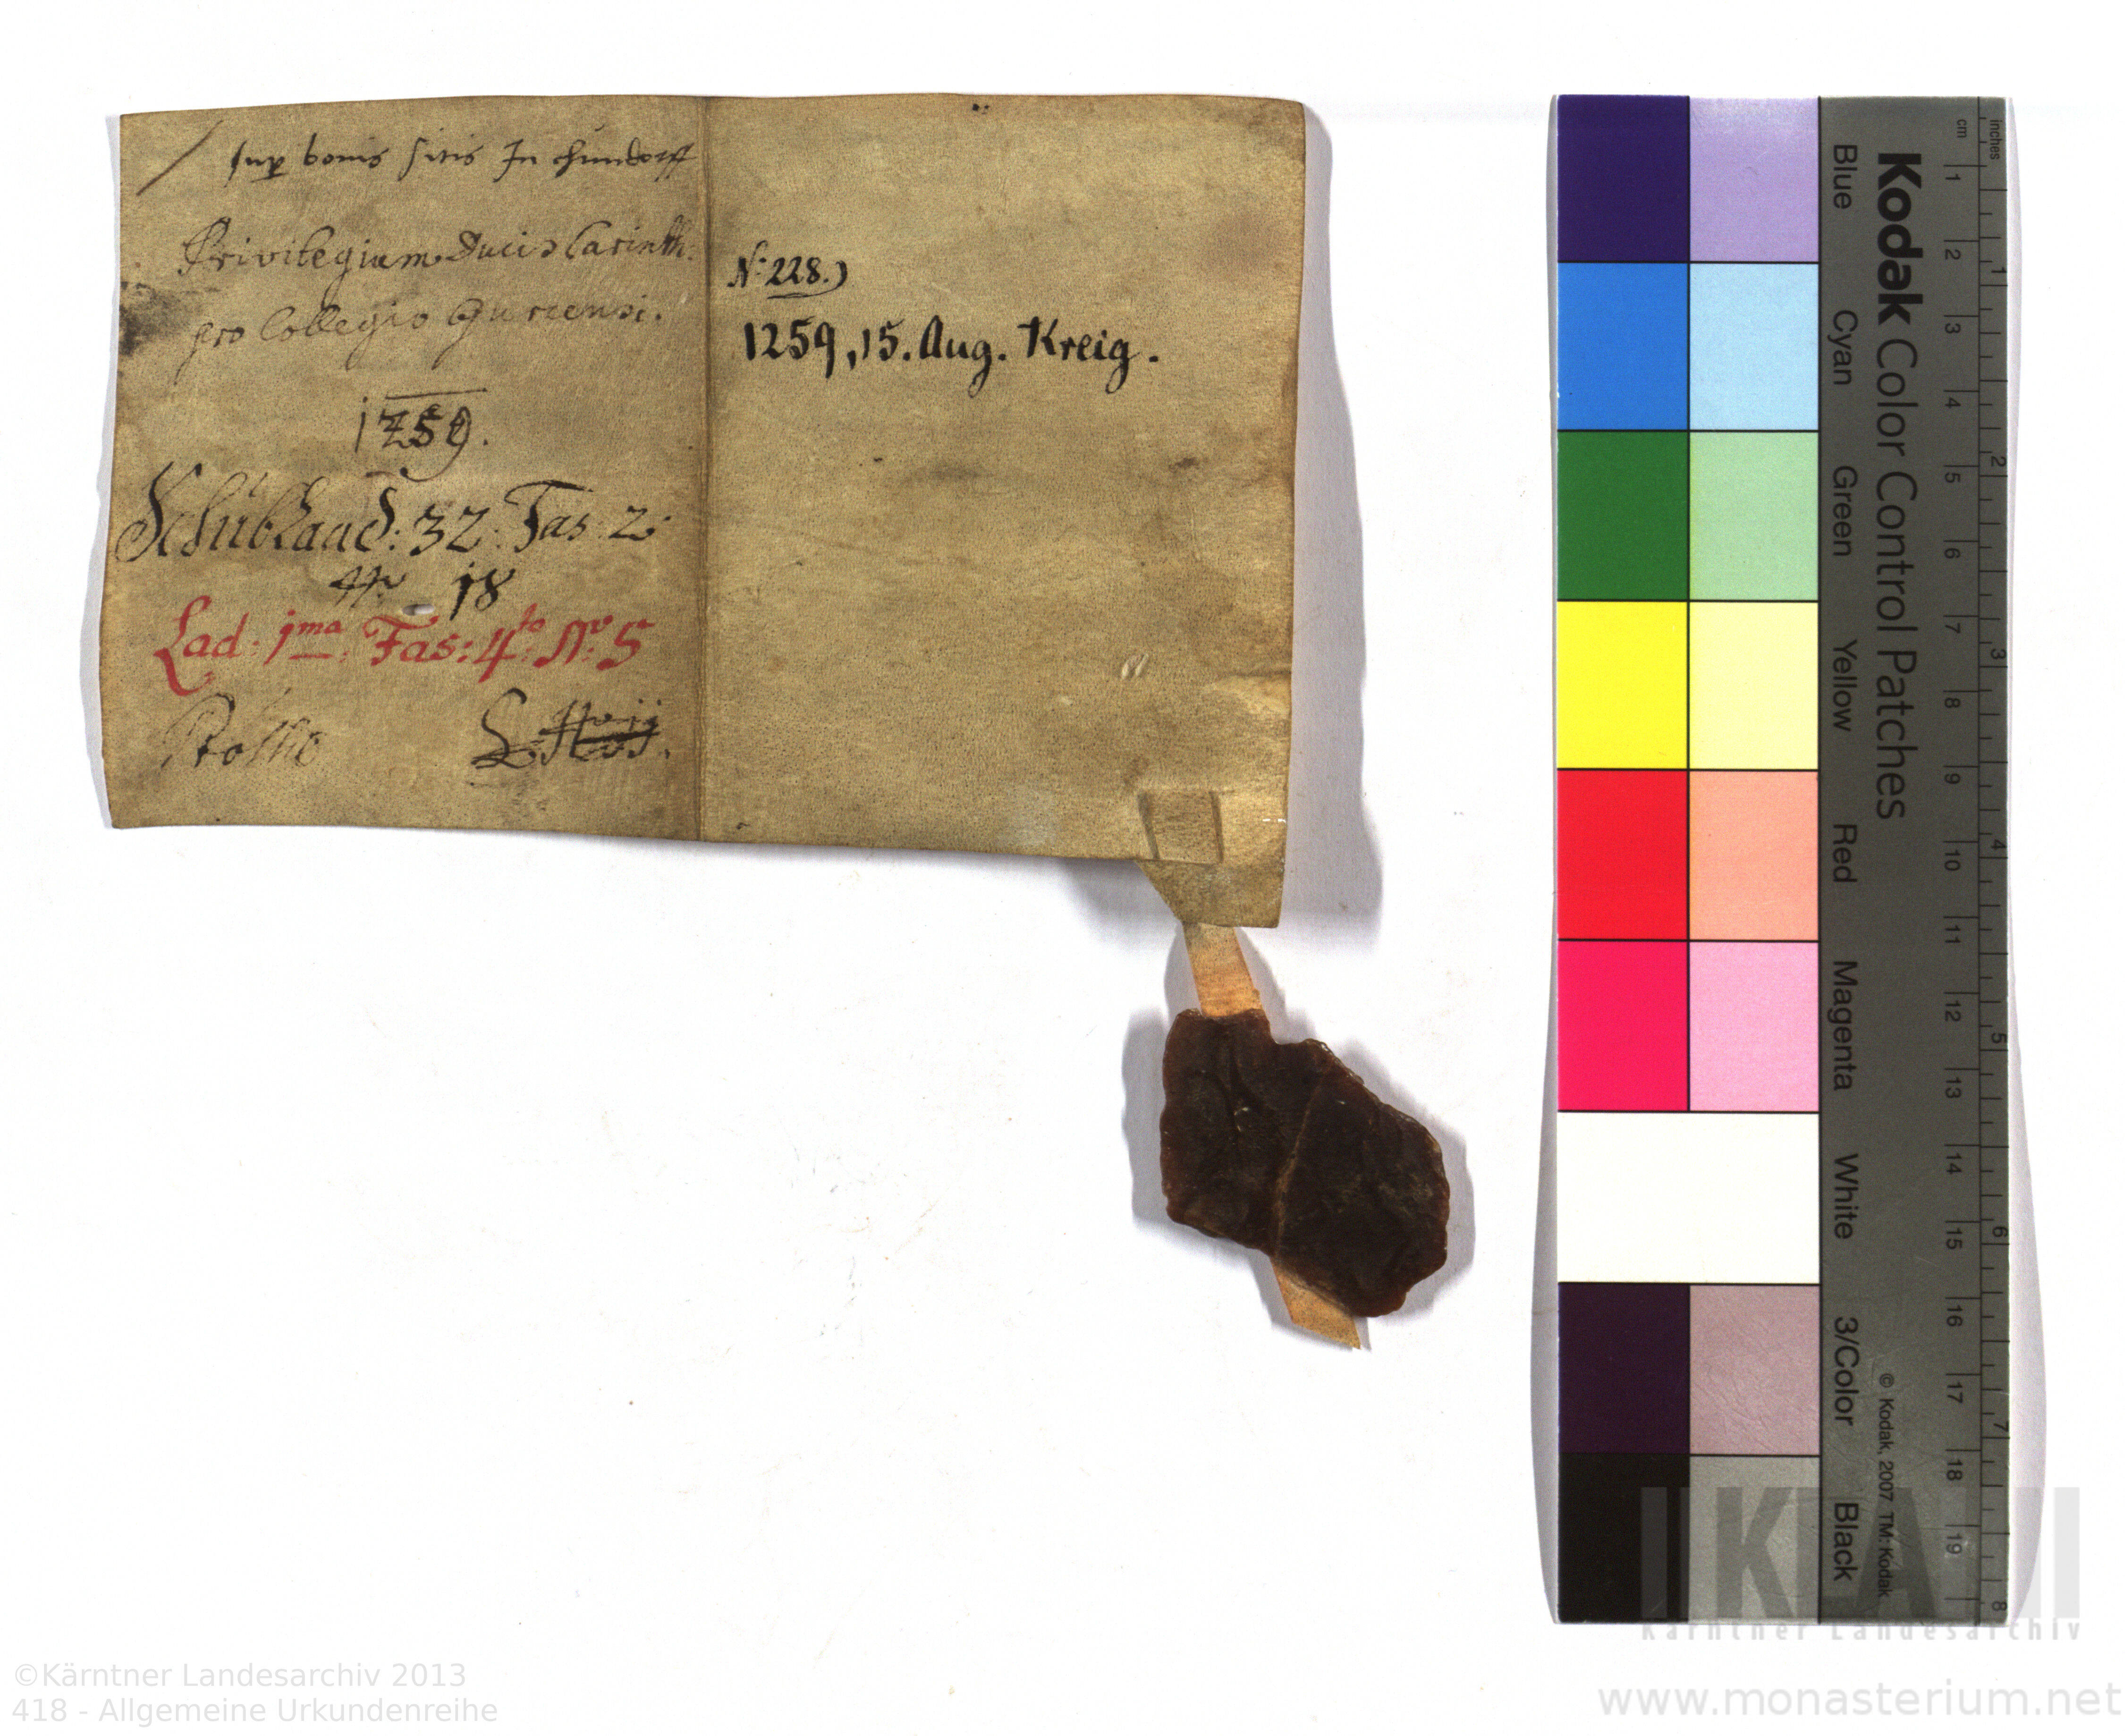 sup bonis sitis In chundorff
Privilegium Ducis Carinth:
pro Collegio Gurcensi.
1259.
Schüblaad: 32: Fas: 2:
18
Lad: 1ma: Fas: 4to: No: 5
N: 228.)
1259, 15. Aug. Kreig.
Kodak Color Control Patches
Blue Cyan Green Yellow Red Magenta White 3/Color Black
© Kodak, 2007 TM: Kodak
cm 1 2 3 4 5 6 7 8 9 10 11 12 13 14 15 16 17 18 19
inches 1 2 3 4 5 6 7 8
KLA
Kärntner Landesarchiv
©Kärntner Landesarchiv 2013
418 - Allgemeine Urkundenreihe
www.monasterium.net